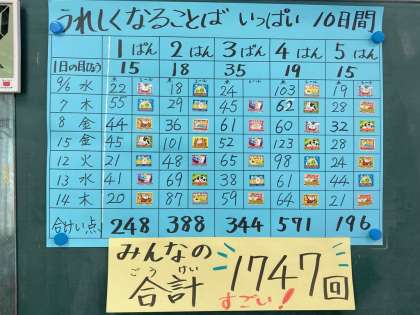 うれしくなることば いっぱい 10日間
1ぱん 2はん 3ぱん 4はん 5はん
1日の目ひょう 15 18 35 19 15
9/6 水 22 18 24 103 19
7 木 55 29 45 62 28
8 金 44 36 61 60 32
15 金 45 101 52 123 28
12 火 21 48 65 98 24
13 水 41 69 38 61 44
14 木 20 87 59 64 21
合けい点 248 388 344 571 196
みんなの
ごうけい
合計 1747回
すごい!